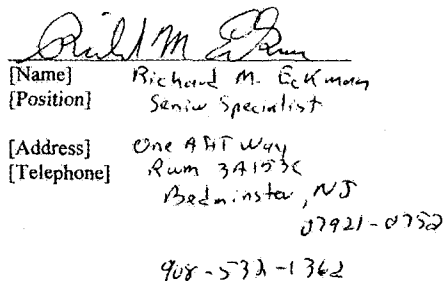 Richard M Eckman
[Name] Richard M. Eckman
[Position] Senior Specialist
[Address] One AT&T Way
[Telephone] Room 3A153C
Bedminster, NJ
07921-0752
908-532-1362